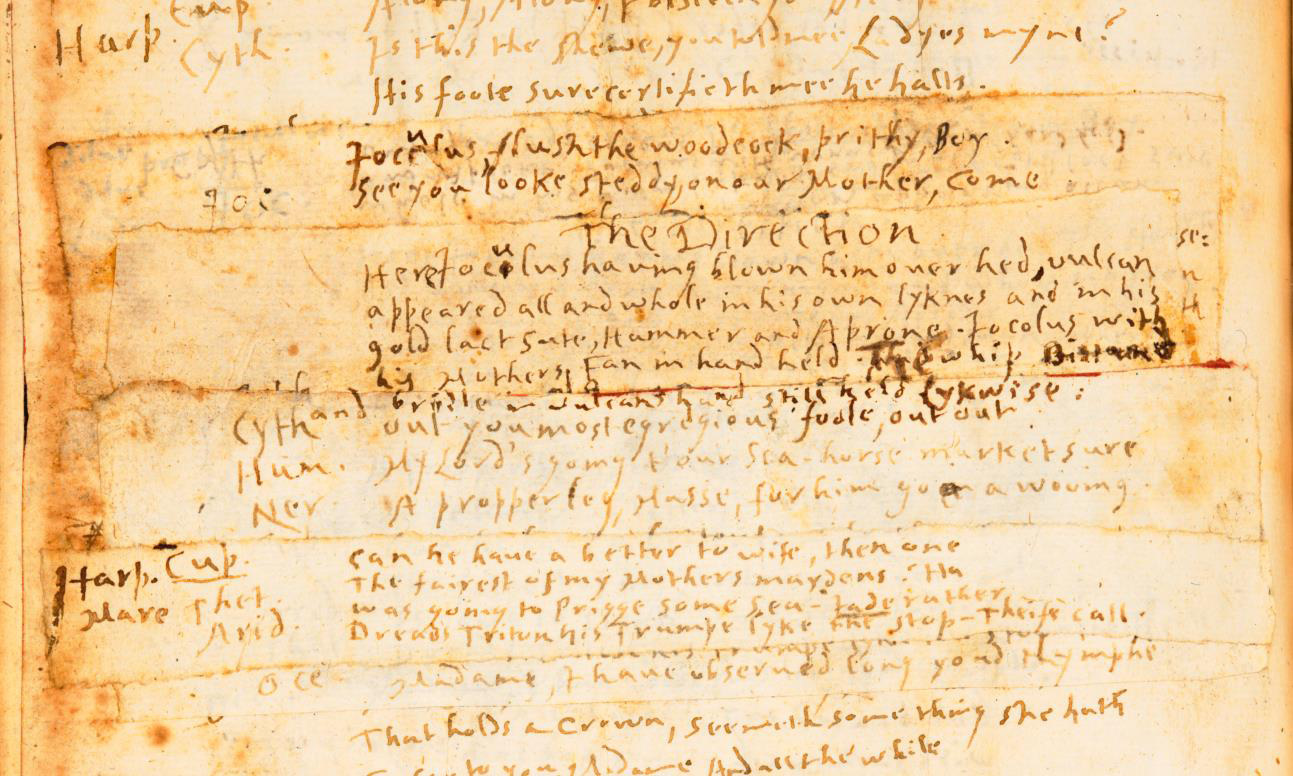 Harp. Cyth. Is this the shewe, you told mee, Ladyes myne?
His foote sure certifieth mee he halts.
Joculus, flush the woodcock, prithy, Boy.
Joc: See you looke steddy, on our Mother, come
The Direction
Here Joculus having blown him over hed, vulcan
appeared all and whole in his own lyknes and in his
gold lact sute, Hammer and Aprone. Jocolus with
his Mothers Fan in hand held The whip
and brydle in Vulcans hand still held lykwise:
Cyth out you most egregious foole, out out
Hum. My Lord's going t'our Sea-horse market sure
Ner A propper leg, Masse, for him go a wooing
Harp. Cup. Can he have a better to wife, then one
The fairest of my Mothers maydens? Ha
Mare Thet. was going to Prigge some Sea-Jade rather
Arid. Dreads Triton his Trumpe lyke the stop-Theife call.
Oce Madame, I have observed long yond Nymphe
That holds a Crown, seemeth something she hath
to you Madame And all the while